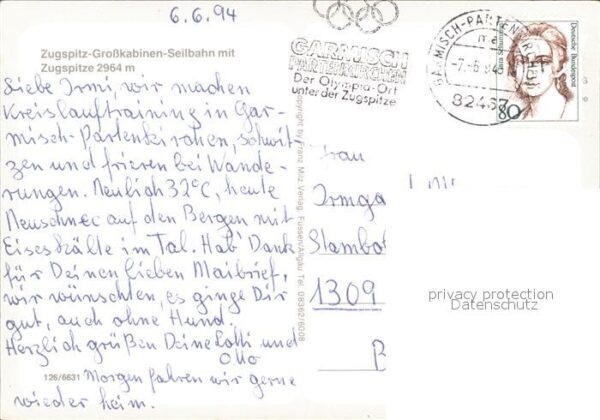 6.6.94
Zugspitz-Großkabinen-Seilbahn mit
Zugspitze 2964 m
Liebe Irmi, wir machen
Kreislauftraining in Gar-
misch-Partenkirchen, schwit-
zen und frieren bei Wande-
rungen. Neulich 32°C, heute
Neuschnee auf den Bergen mit
Eiseskälte im Tal. Hab' Dank
für Deinen lieben Maibrief,
wir wünschten, es ginge Dir
gut, auch ohne Hund.
Herzlich grüßen Deine Lotti und
Otto
126/6631 Morgen fahren wir gerne
wieder heim.
Copyright by Franz Milz Verlag, Füssen/Allgäu Tel. 08362/6008
GARMISCH
PARTENKIRCHEN
Der Olympia-Ort
unter der Zugspitze
GARMISCH-PARTENKIRCHEN
82467
Deutsche Bundespost
80
Frau
Irmga
Stambo
1309
B
privacy protection
Datenschutz